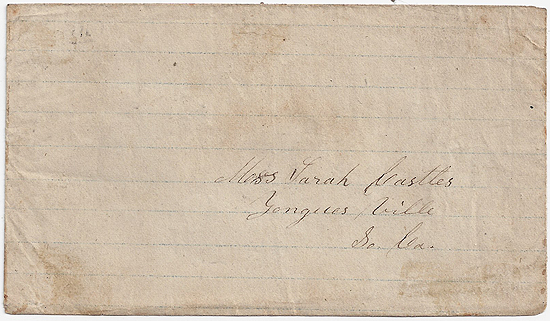 Miss Sarah Castles
Yongues, Ville
So. Ca.